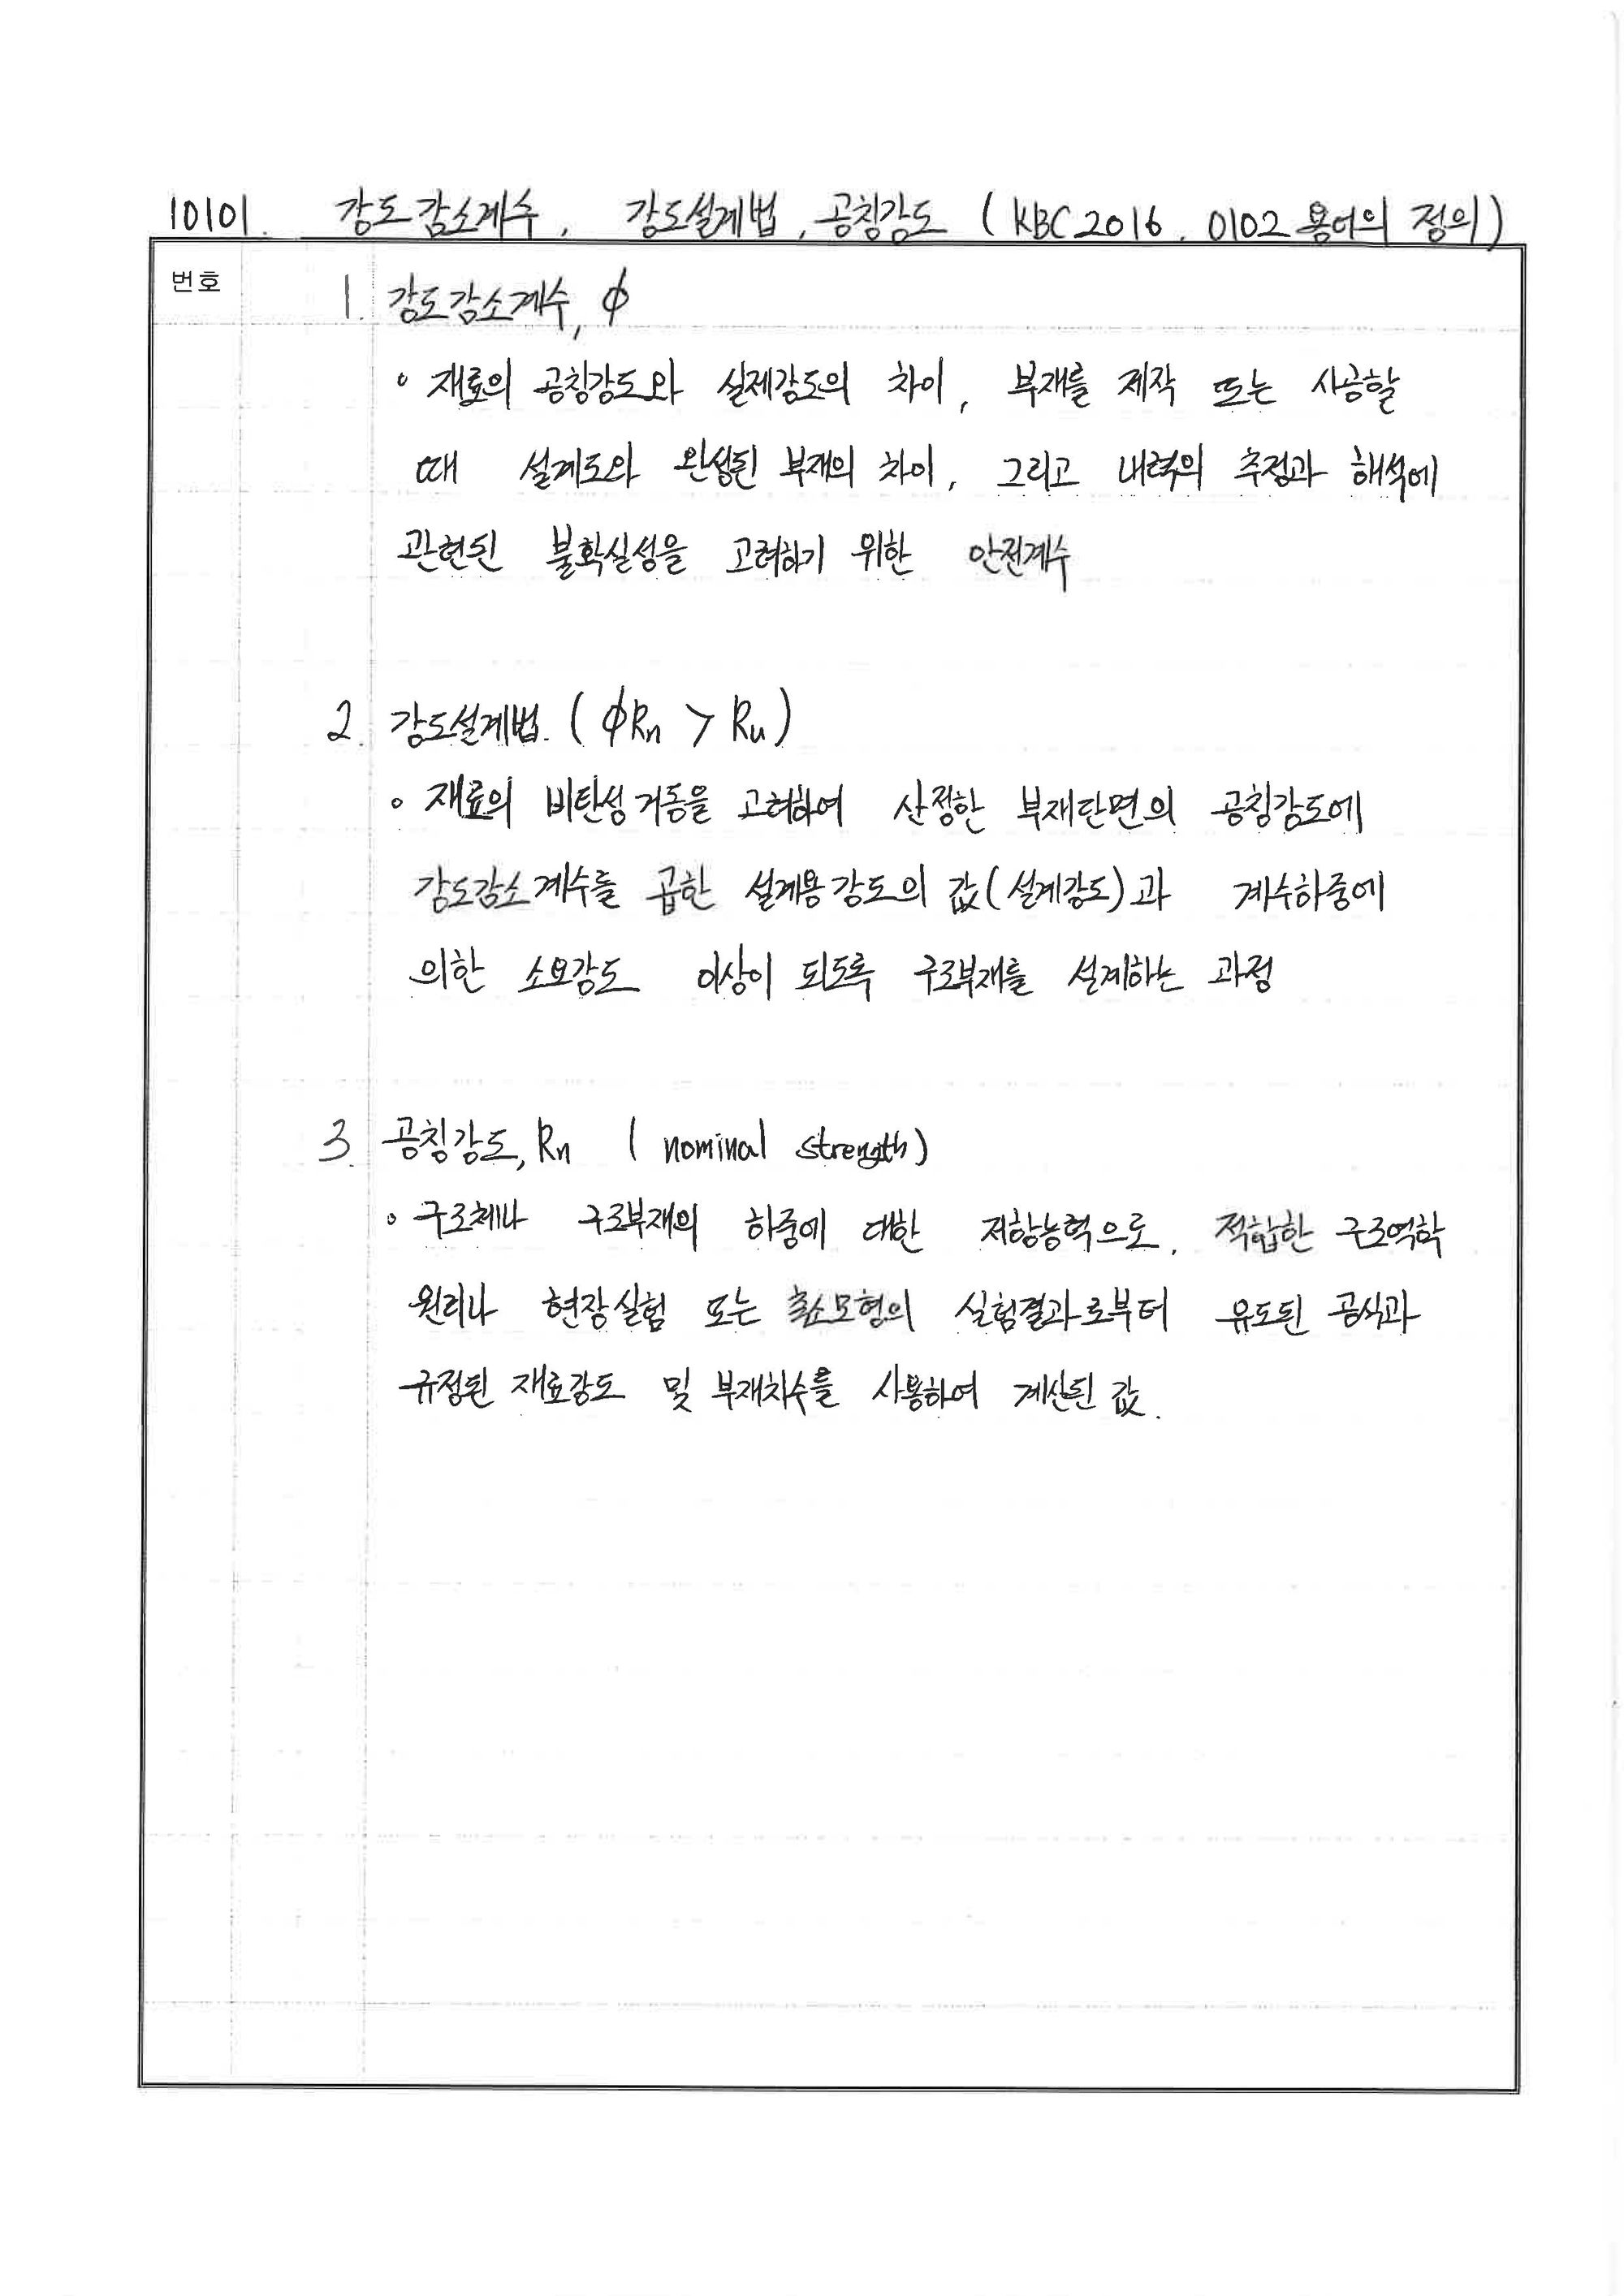 10101. 강도감소계수, 강도설계법, 공칭강도 (KBC 2016. 0102 용어의 정의)
번호
1. 강도감소계수, ϕ
∘ 재료의 공칭강도와 실제강도의 차이, 부재를 제작 또는 시공할
때 설계도와 완성된 부재의 차이, 그리고 내력의 추정과 해석에
관련된 불확실성을 고려하기 위한 안전계수
2. 강도설계법. (ϕRn > Ru)
∘ 재료의 비탄성거동을 고려하여 산정한 부재단면의 공칭강도에
강도감소계수를 곱한 설계용강도의 값(설계강도)과 계수하중에
의한 소요강도 이상이 되도록 구조부재를 설계하는 과정
3. 공칭강도, Rn (nominal strength)
∘ 구조체나 구조부재의 하중에 대한 저항능력으로, 적합한 구조역학
원리나 현장실험 또는 축소모형의 실험결과로부터 유도된 공식과
규정된 재료강도 및 부재치수를 사용하여 계산된 값.